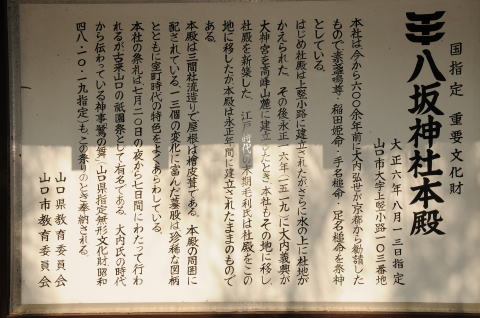 国指定 重要文化財
八坂神社本殿
大正六年八月一三日指定
山口市大字上竪小路一〇三番地
本社は、今から六〇〇余年前に大内弘世が京都から勧請した
もので素盞嗚尊・稲田姫命・手名槌命・足名槌命を祭神
としている。
はじめ社殿は上竪小路に建立されたがさらに水の上に社地が
かえられた。その後永正一六年(一五一九)に大内義興が
大神宮を高峰山麓に建立したとき、本社もその地に移し、
社殿を新築した。江戸時代の末期毛利氏は社殿をこの
地に移したが本殿は永正年間に建立されたままのもので
ある。
本殿は三間社流造りで屋根は檜皮葺である。本殿の周囲に
配されている一三個の変化に富んだ蟇股は珍稀な図柄
とともに室町時代の特色をよくあらわしている。
本社の祭礼は七月二〇日の夜から七日間にわたって行わ
れるが古来山口の祇園祭として有名である。大内氏の時代
から伝わっている神事鷺の舞(山口県指定無形文化財昭和
四八・一〇・一九指定)も、この祭りのとき奉納される。
山口県教育委員会
山口市教育委員会